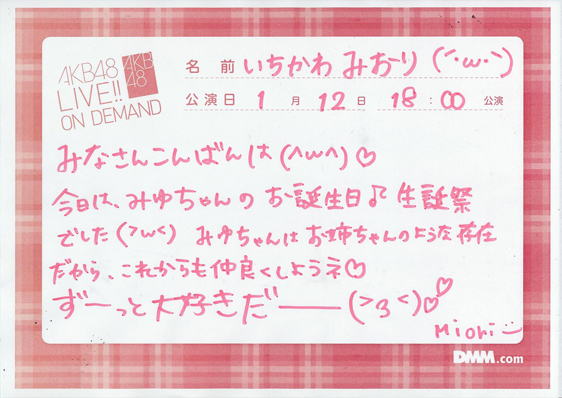 AKB48
LIVE!!
ON DEMAND
AKB
48
名前 いちかわ みおり (´･ω･`)
公演日 1月 12日 18:00 公演
みなさんこんばんは(^ω^)♡
今日は、みゆちゃんの お誕生日♪生誕祭
でした(>ω<) みゆちゃんはお姉ちゃんのような存在
だから、これからも仲良くしようネ♡
ずーっと大好きだ――(>3<)♡♡
Miori
DMM.com